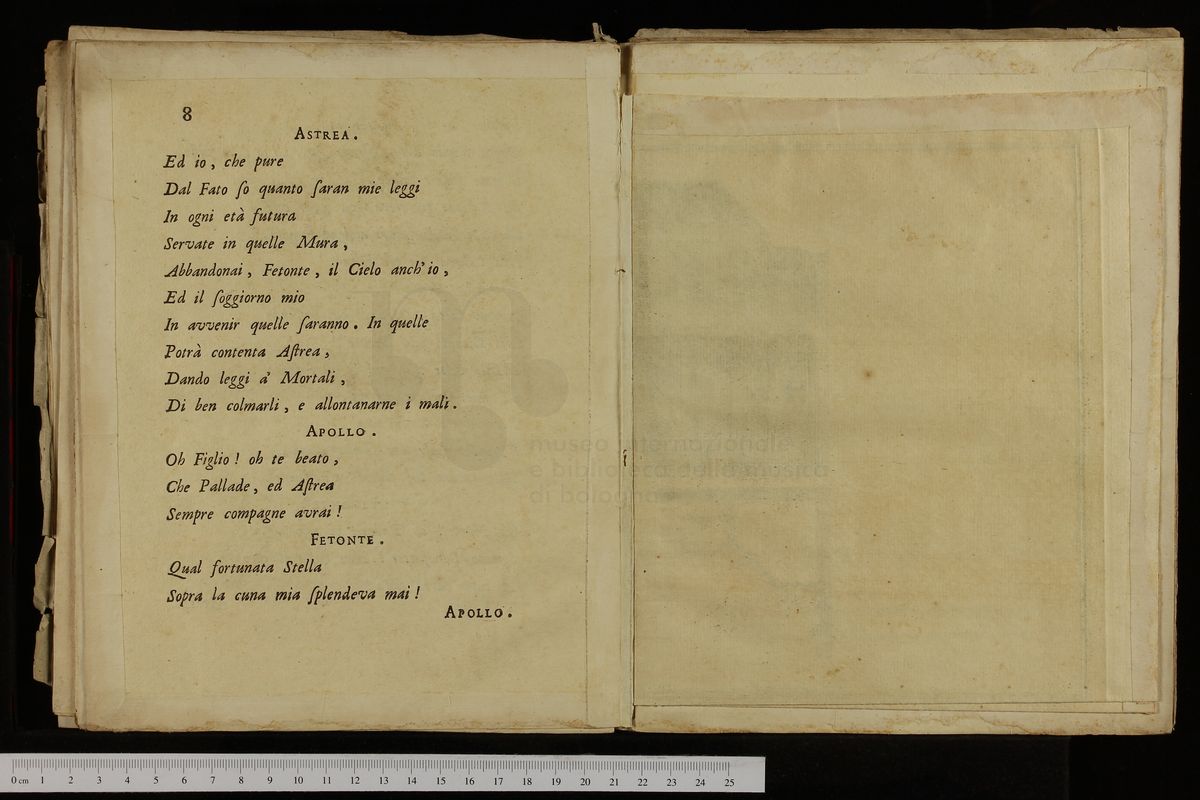 8
ASTREA.
Ed io, che pure
Dal Fato ſo quanto ſaran mie leggi
In ogni età futura
Servate in quelle Mura,
Abbandonai, Fetonte, il Cielo anch'io,
Ed il ſoggiorno mio
In avvenir quelle ſaranno. In quelle
Potrà contenta Aſtrea,
Dando leggi a' Mortali,
Di ben colmarli, e allontanarne i mali.
APOLLO.
Oh Figlio! oh te beato,
Che Pallade, ed Aſtrea
Sempre compagne avrai!
FETONTE.
Qual fortunata Stella
Sopra la cuna mia ſplendeva mai!
APOLLO.
museo internazionale
e biblioteca della musica
di bologna
0 cm 1 2 3 4 5 6 7 8 9 10 11 12 13 14 15 16 17 18 19 20 21 22 23 24 25